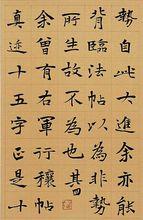 勢自此大進余亦能
背臨法帖以為非勢
所生故不為也其四
余曾有右軍行穰帖
真迹十五字正是十